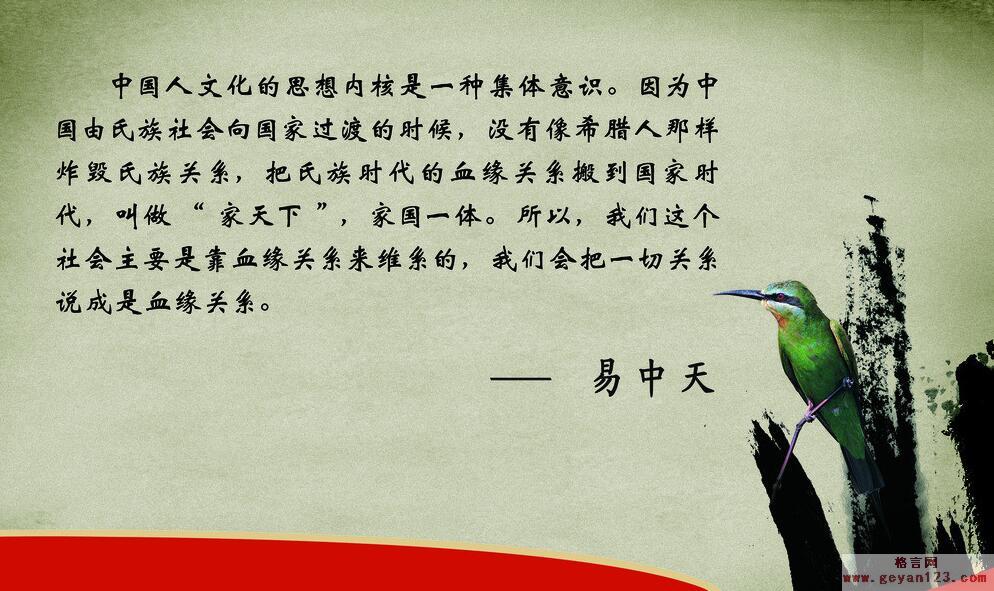 中国人文化的思想内核是一种集体意识。因为中
国由氏族社会向国家过渡的时候，没有像希腊人那样
炸毁氏族关系，把氏族时代的血缘关系搬到国家时
代，叫做“家天下”，家国一体。所以，我们这个
社会主要是靠血缘关系来维系的，我们会把一切关系
说成是血缘关系。
—— 易中天
格言网
www.geyan123.com